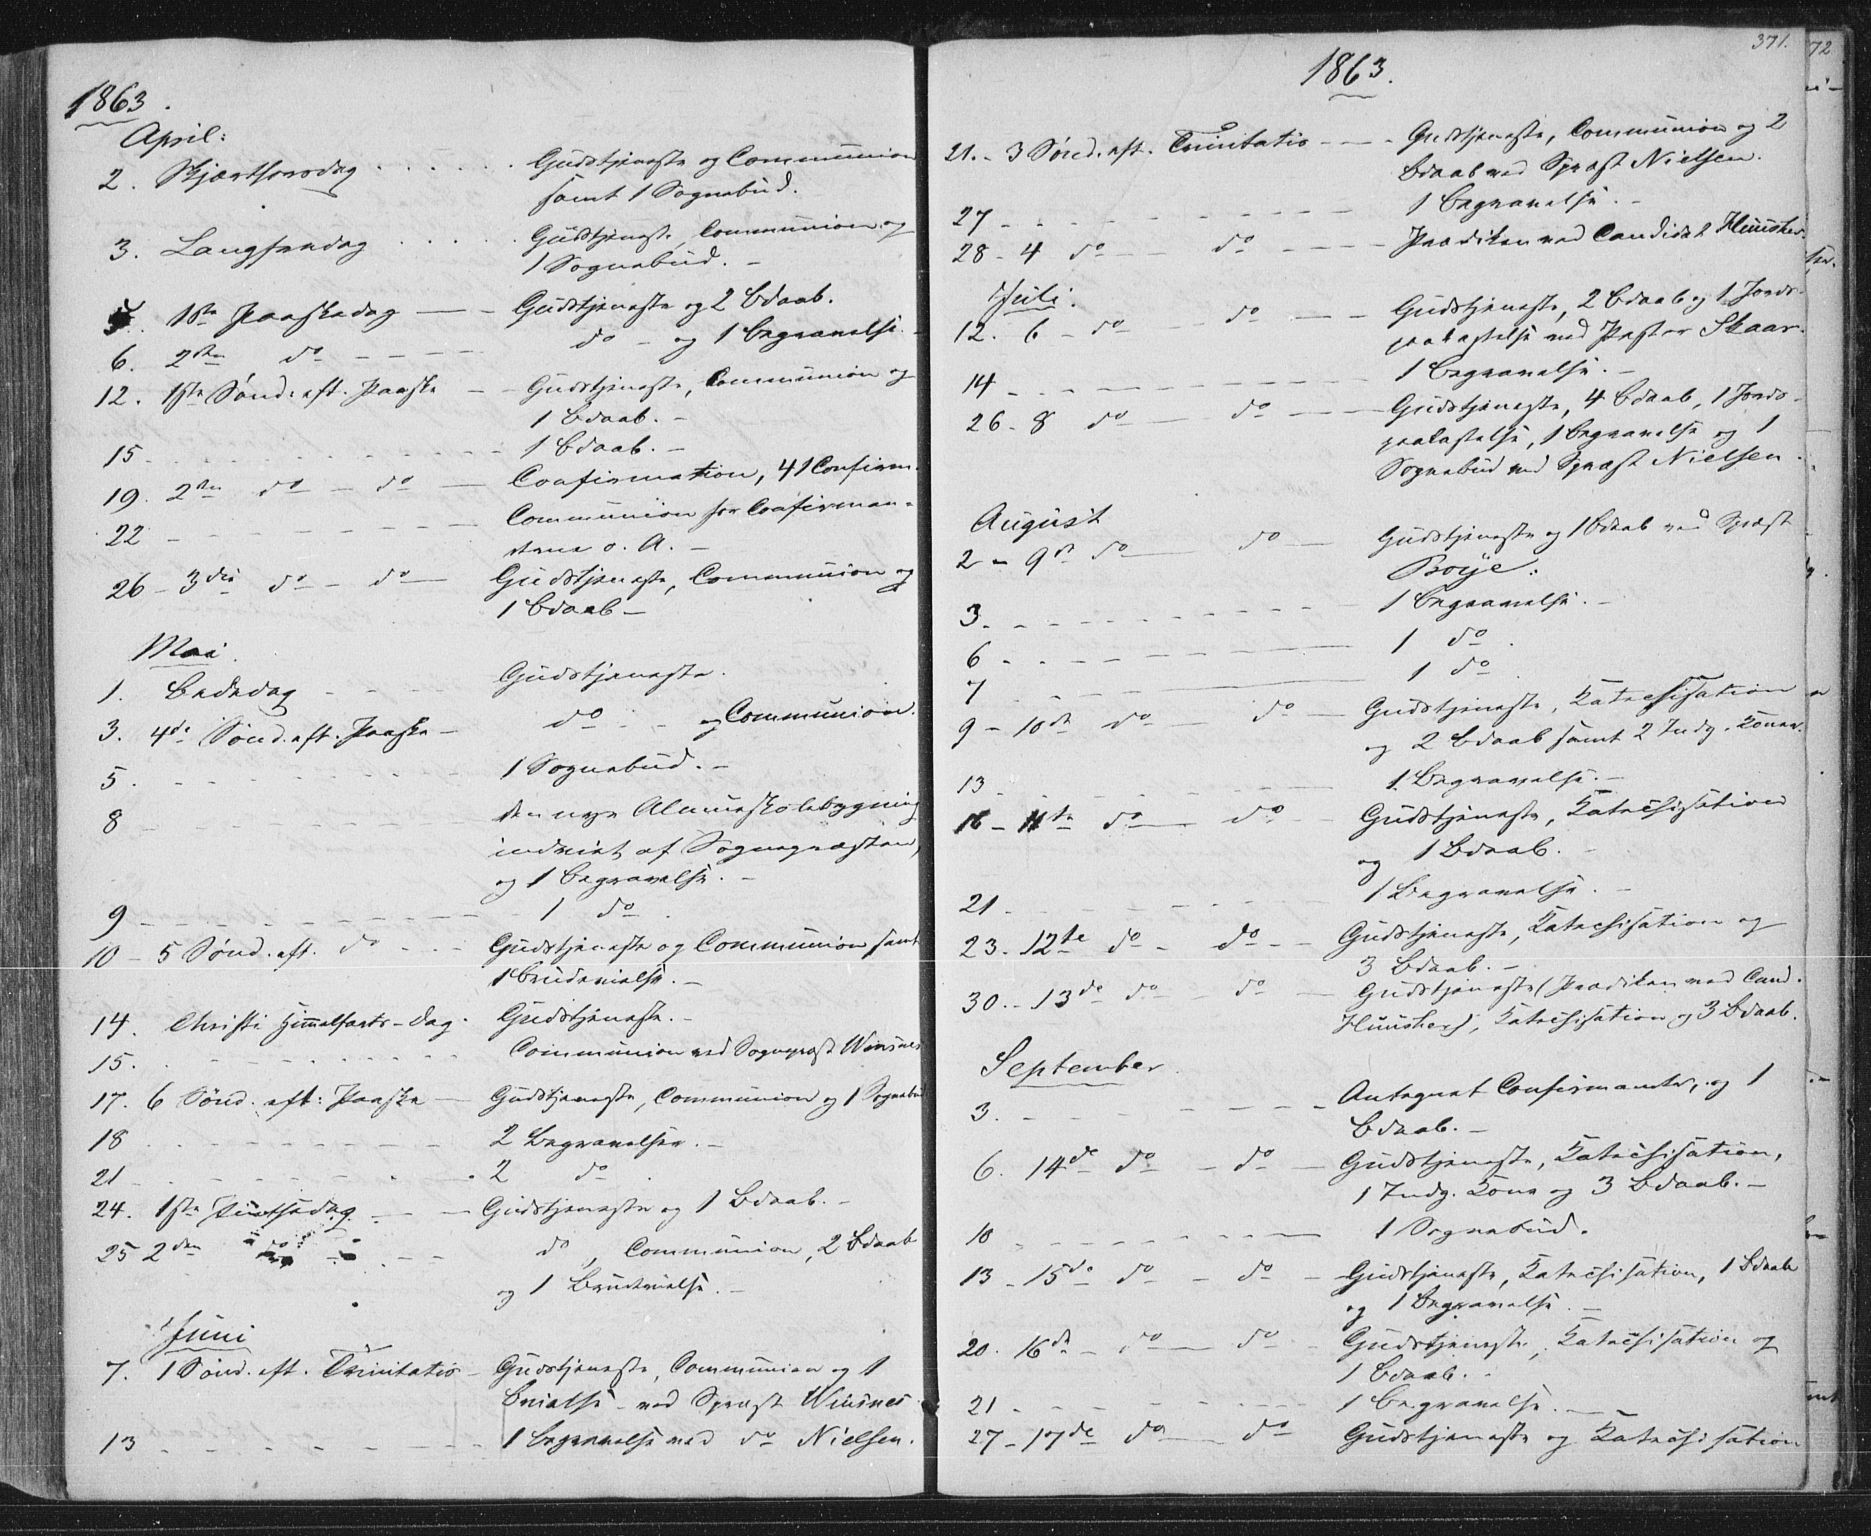 1863.
April:
2. Skjærthorsdag . . . . . . Gudstjeneste og Communion
samt 1 Sognebud.
3. Langfredag . . . . . Gudstjeneste, Communion og
1 Sognebud. –
5. 1ste Paaskedag – – Gudstjeneste og 2 Bdaab.
6. 2den do – – – – do – og 1 Begravelse. –
12. 1ste Sønd. eft. Paaske – – Gudstjeneste, Communion og
1 Bdaab. –
15. – – – – – 1 Bdaab. –
19. 2den do – do – Confirmation, 41 Confirm.
22 – – – – – Communion for Confirman-
terne o. A. –
26 – 3die do – do – Gudstjeneste, Communion og
1 Bdaab –
Mai.
1. Bededag – – – Gudstjeneste.
3. 4de Sønd. eft. Paaske – do – og Communion.
5. – – – – – 1 Sognebud. –
8 – – – – – den nye Almueskolebygning
indviet af Sognepræsten,
og 1 Begravelse. –
9 – – – – – 1 do.
10 – 5 Sønd. eft. do – – – Gudstjeneste og Communion samt
1 Brudevielse. –
14. Christi Himmelfarts-Dag. Gudstjeneste. –
15. . . . . . Communion ved Sognepræst Winsnes
17. 6 Sønd. eft: Paaske – Gudstjeneste, Communion og 1 Sognebud
18 – – – – – 2 Begravelser. –
21 – – – – – 2 do.
24. 1ste Pintsedag. – – – Gudstjeneste og 1 Bdaab. –
25 2den do – – – do, Communion, 2 Bdaab
og 1 Brudevielse. –
Juni
7. 1 Sønd. eft. Trinitatis – Gudstjeneste, Communion og 1
Brvielse – ved Spræst Winsnes
13 – – – – – 1 Begravelse ved do Nielsen.
371.
1863.
21. – 3 Sønd. eft. Trinitatis – – – Gudstjeneste, Communion og 2
Bdaab ved Spræst Nielsen.
27 – – – – – 1 Begravelse. –
28 – 4 do – – do – – – – Prædiken ved Candidat Huusher.
Juli.
12. 6 – do – do – – – Gudstjeneste, 2 Bdaab og 1 Jords-
paakastelse ved Pastor Skaar.
14 – – – – – 1 Begravelse. –
26 – 8 do – do – – – Gudstjeneste, 4 Bdaab, 1 Jords-
paakastelse, 1 Begravelse og 1
Sognebud ved Spræst Nielsen.
August
2 – 9de do – do – Gudstjeneste og 1 Bdaab ved Spræst
Boije.
3. – – – – – 1 Begravelse. –
6 – – – – – 1 do.
7 – – – – – 1 do.
9 – 10de do – do – Gudstjeneste, Katechisation
og 2 Bdaab samt 2 Indg. Koner.
13 – – – – – 1 Begravelse. –
16 – 11te do – do – – Gudstjeneste, Katechisation
og 1 Bdaab. –
21 – – – – – 1 Begravelse. –
23. – 12te do – do – – Gudstjeneste, Katechisation og
3 Bdaab. –
30. – 13de do – do – Gudstjeneste (Prædiken ved Cand.
Huusher), Katechisation og 3 Bdaab.
September.
3. – – – – – Antegnet Confirmanter, og 1
Bdaab. –
6. 14de do – do – Gudstjeneste, Katechisation,
1 Indg. Kone og 3 Bdaab. –
10 – – – – – 1 Sognebud.
13 – 15de do – do – Gudstjeneste, Katechisation, 1 Bdaab
og 1 Begravelse. –
20. 16de – do – do – Gudstjeneste, Katechisation og
1 Bdaab. –
21 – – – – – 1 Begravelse. –
27 – 17de do – do Gudstjeneste og Katechisation
72